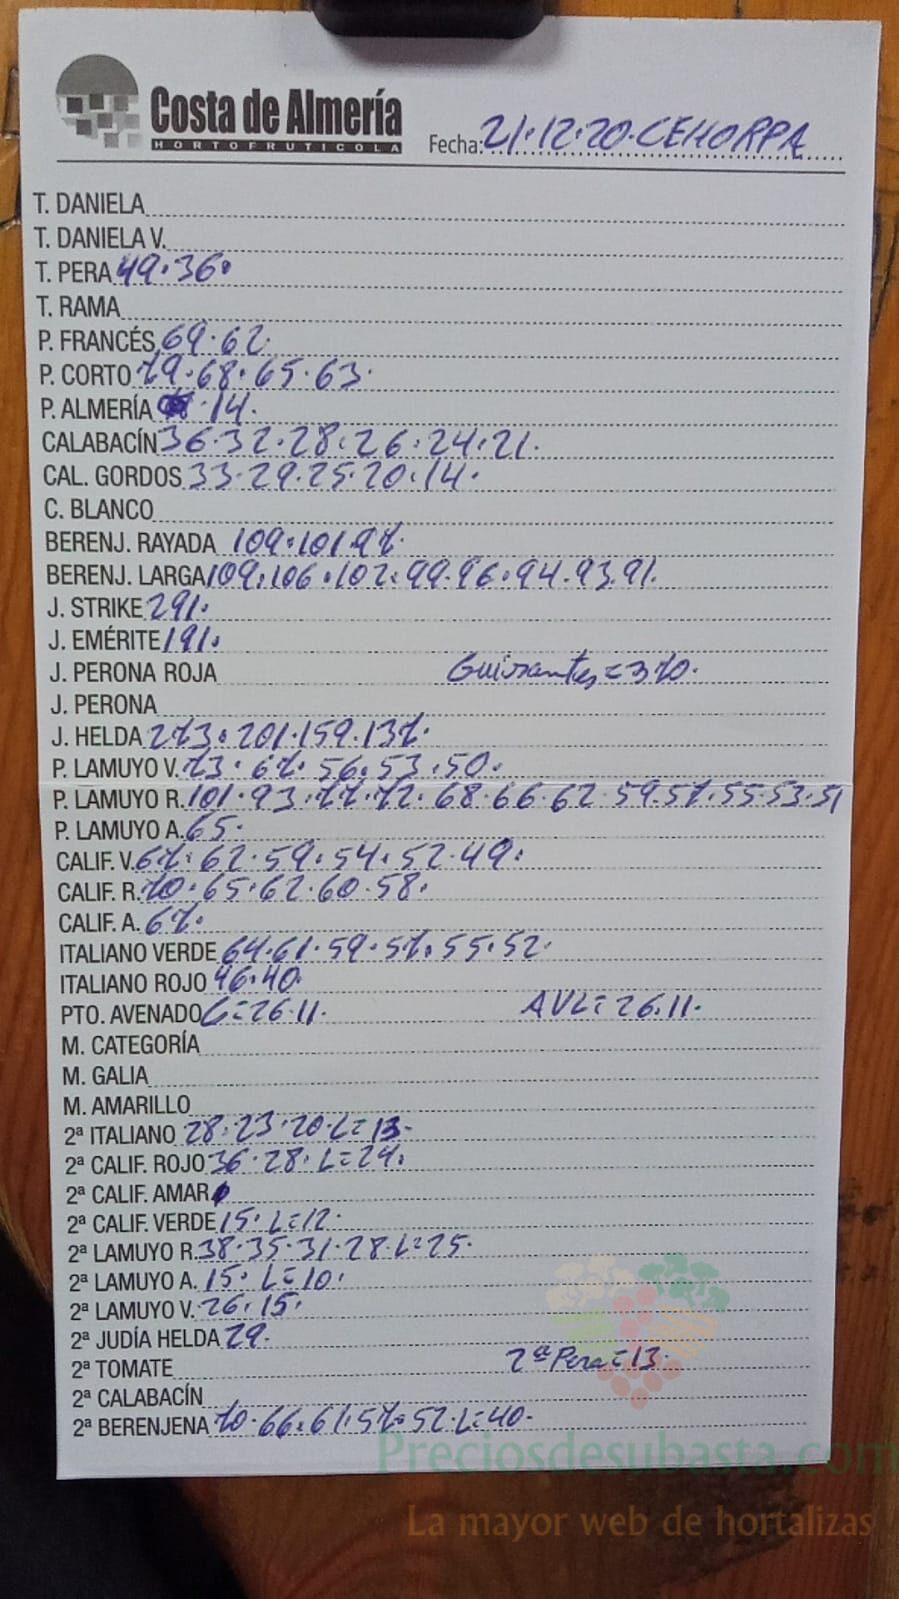 Costa de Almería
HORTOFRUTICOLA
Fecha: 21.12.20.CEHORPA
T. DANIELA
T. DANIELA V.
T. PERA 49.36.
T. RAMA
P. FRANCÉS 69.62.
P. CORTO 79.68.65.63.
P. ALMERÍA .14.
CALABACÍN 36.32.28.26.24.21.
CAL. GORDOS 33.29.25.20.14.
C. BLANCO
BERENJ. RAYADA 109.101.97.
BERENJ. LARGA 109.106.102.99.96.94.93.91.
J. STRIKE 291.
J. EMÉRITE 191.
J. PERONA ROJA Guisantes=370.
J. PERONA
J. HELDA 273.201.159.137.
P. LAMUYO V. 73.67.56.53.50.
P. LAMUYO R. 101.93.77.72.68.66.62.59.57.55.53.51
P. LAMUYO A. 65.
CALIF. V. 67.62.59.54.52.49.
CALIF. R. 70.65.62.60.58.
CALIF. A. 67.
ITALIANO VERDE 64.61.59.57.55.52.
ITALIANO ROJO 46.40.
PTO. AVENADO C=26.11. AVL=26.11.
M. CATEGORÍA
M. GALIA
M. AMARILLO
2ª ITALIANO 28.23.20.L=13.
2ª CALIF. ROJO 36.28.L=24.
2ª CALIF. AMAR
2ª CALIF. VERDE 15.L=12.
2ª LAMUYO R. 38.35.31.28.L=25.
2ª LAMUYO A. 15.L=10.
2ª LAMUYO V. 26.15.
2ª JUDÍA HELDA 29.
2ª TOMATE 2ª Pera=13.
2ª CALABACÍN
2ª BERENJENA 70.66.61.57.52.L=40.
Preciosdesubasta.com
La mayor web de hortalizas